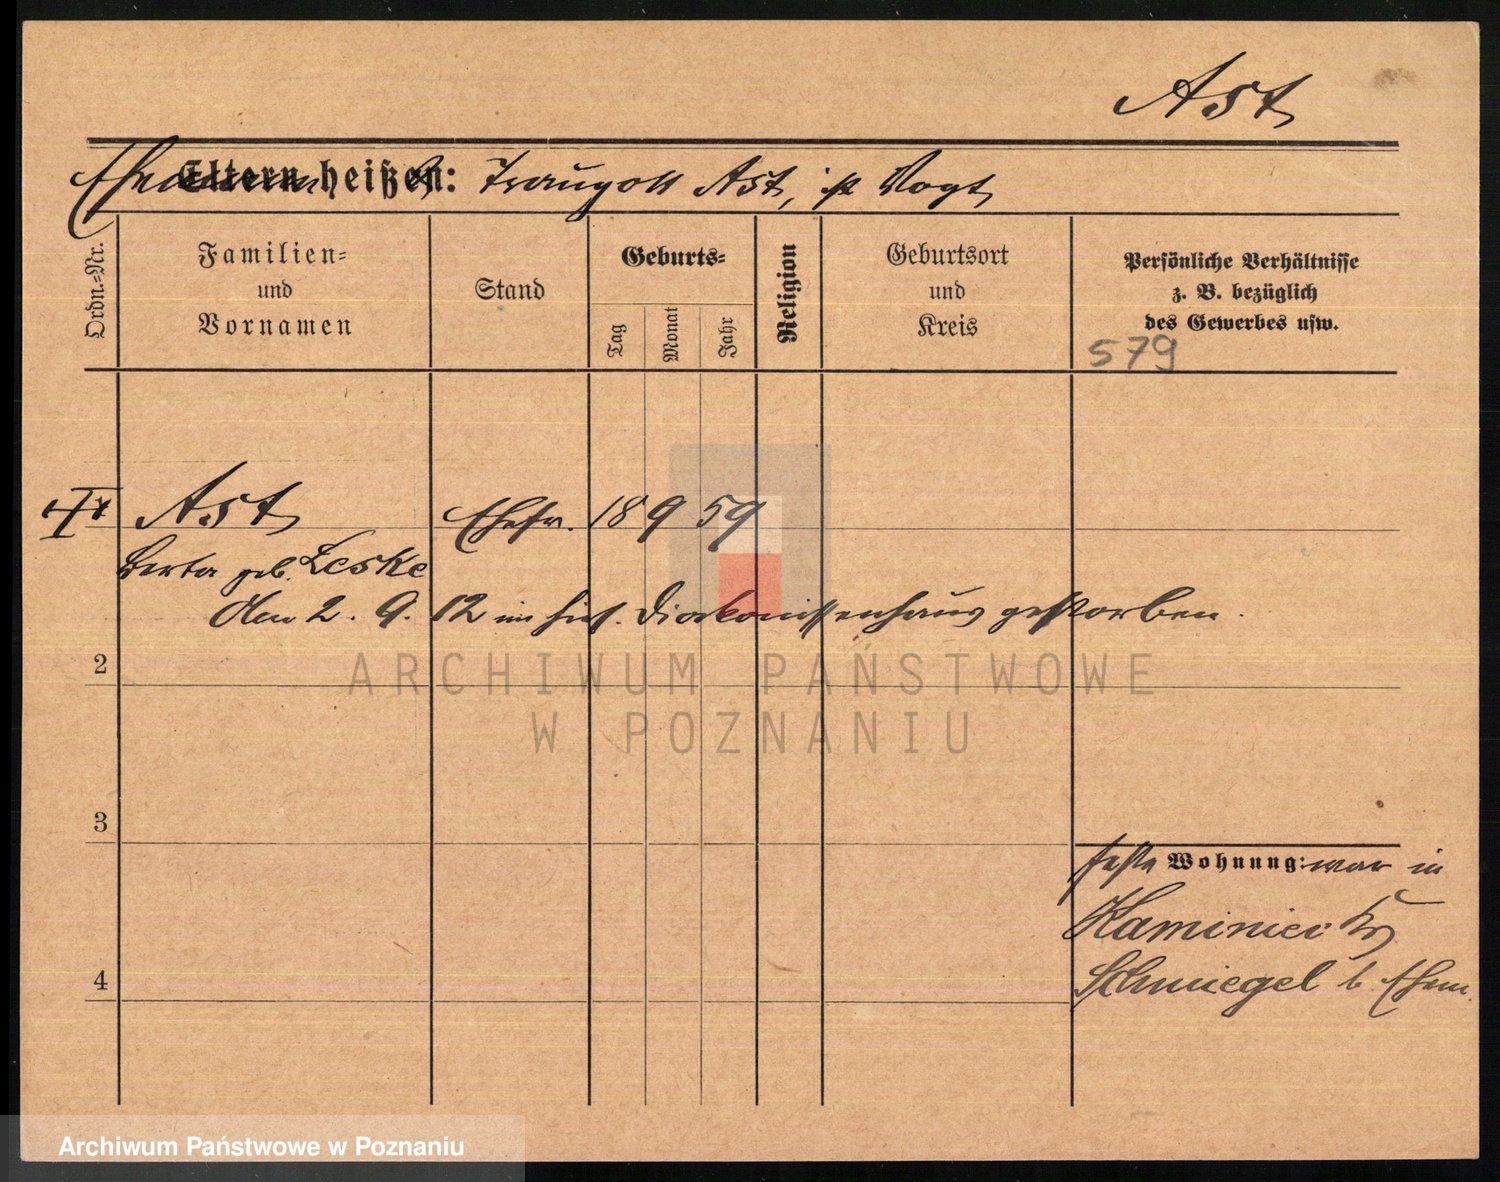 Ast
Ehemann heißen: Traugott Ast, ist Vogt
Ordn.-Nr.
Familien-
und
Vornamen
Stand
Geburts-
Tag
Monat
Jahr
Religion
Geburtsort
und
Kreis
Persönliche Verhältnisse
z. B. bezüglich
des Gewerbes usw.
579
Ast Ehefr. 18 9 59
Berta geb. Leske
den 2. 9. 12 im hies. Diakonissenhaus gestorben.
2
ARCHIWUM PAŃSTWOWE
W POZNANIU
3
feste Wohnung: war in
Kaminiec Kr
4
Schmiegel b. Ehem.
Archiwum Państwowe w Poznaniu